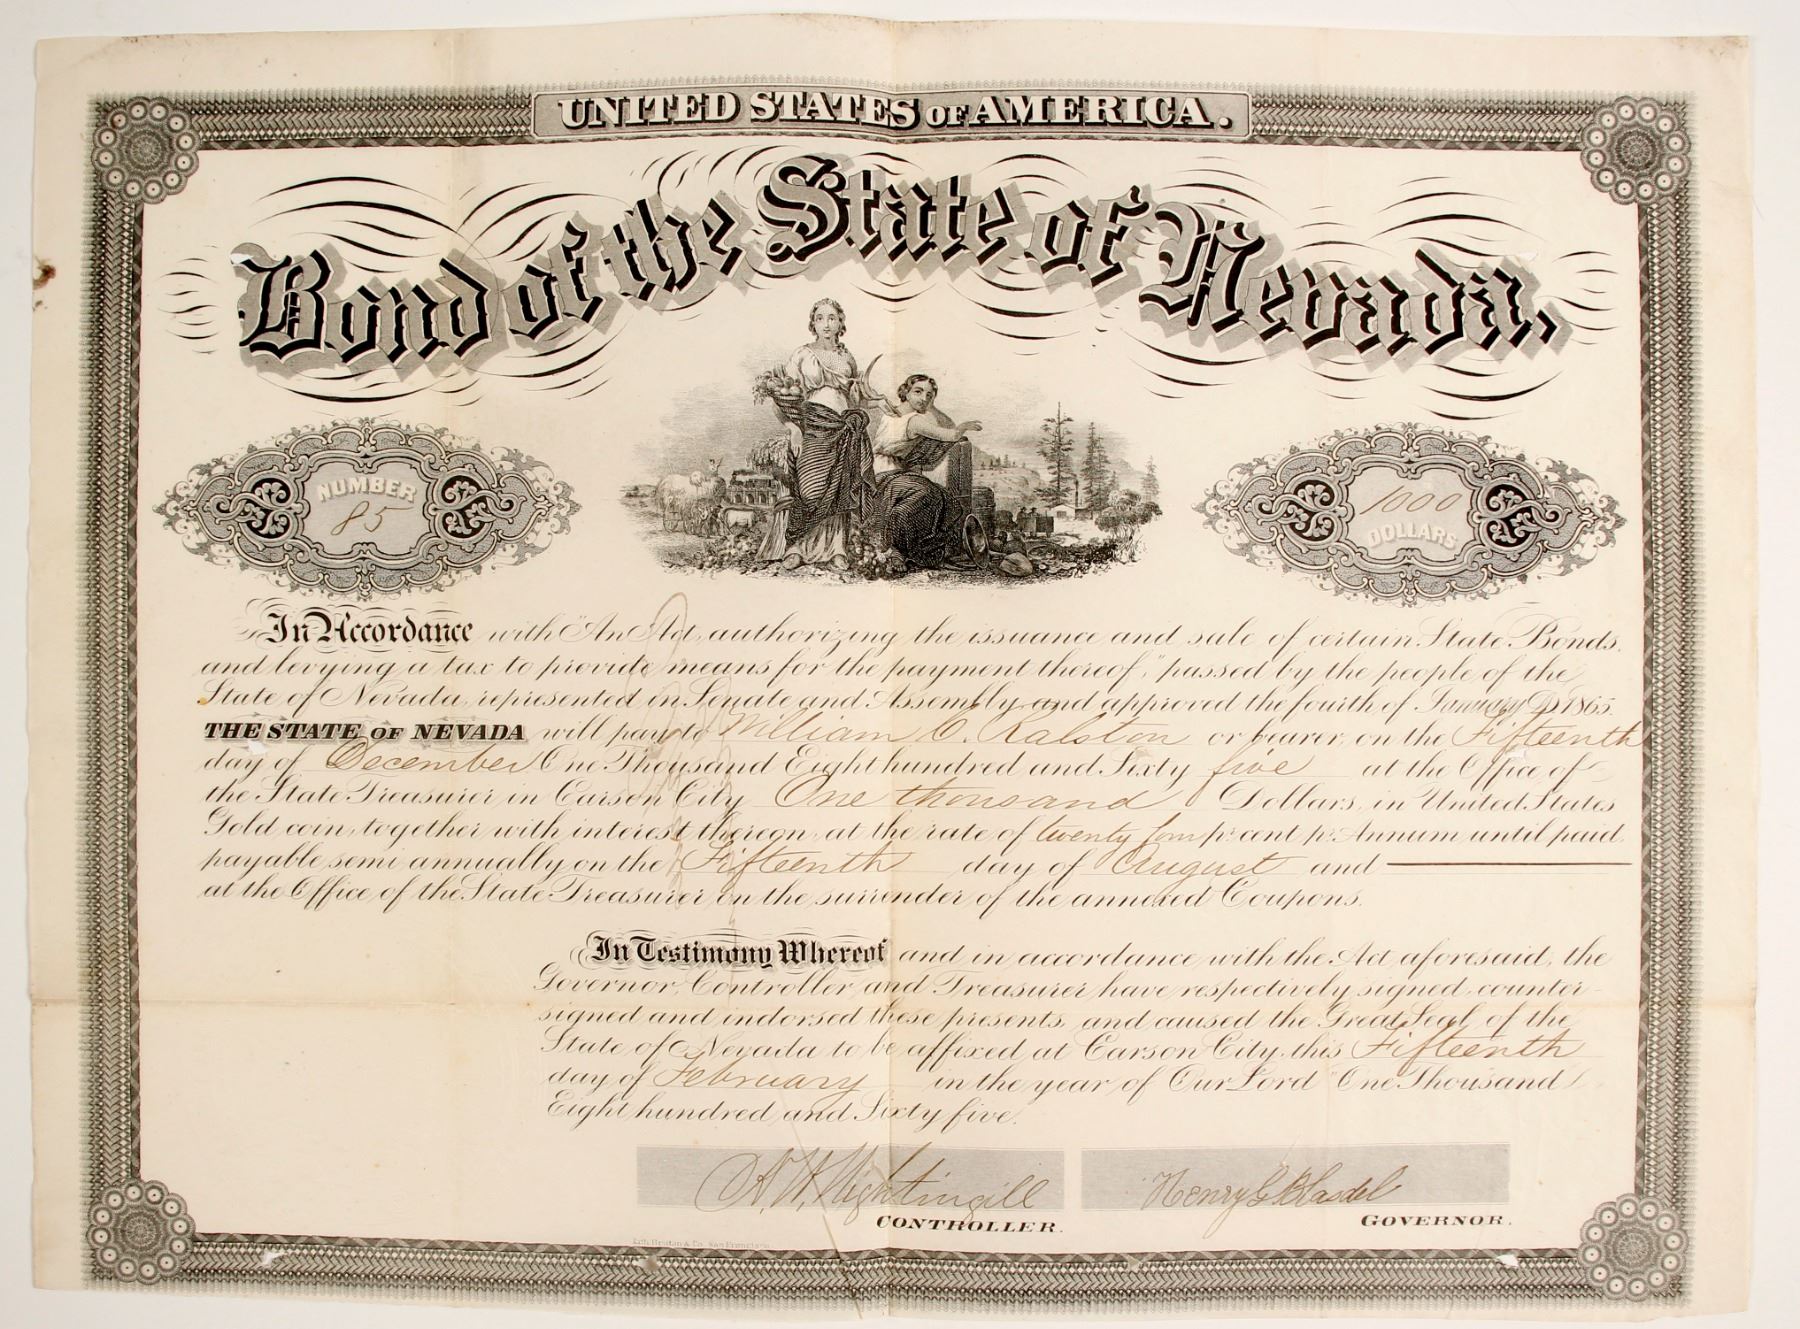 UNITED STATES OF AMERICA.
Bond of the State of Nevada,
NUMBER
85
1000
DOLLARS
In Accordance with "An Act, authorizing the issuance and sale of certain State Bonds,
and levying a tax to provide means for the payment thereof," passed by the people of the
State of Nevada, represented in Senate and Assembly and approved the fourth of January AD 1865.
THE STATE OF NEVADA will pay to William C. Ralston or bearer, on the Fifteenth
day of December One Thousand Eight hundred and Sixty five at the Office of
the State Treasurer in Carson City One thousand Dollars, in United States
Gold coin, together with interest thereon, at the rate of twenty four pr cent pr Annum until paid
payable semi annually on the Fifteenth day of August and
at the Office of the State Treasurer on the surrender of the annexed Coupons.
In Testimony Whereof and in accordance with the Act, aforesaid, the
Governor, Controller, and Treasurer have respectively signed, counter-
signed and indorsed these presents, and caused the Great Seal of the
State of Nevada to be affixed at Carson City, this Fifteenth
day of February in the year of Our Lord One Thousand
Eight hundred and Sixty five.
A. W. Nightingill
CONTROLLER.
Henry G. Blasdel
GOVERNOR.
Lith. Britton & Co. San Francisco